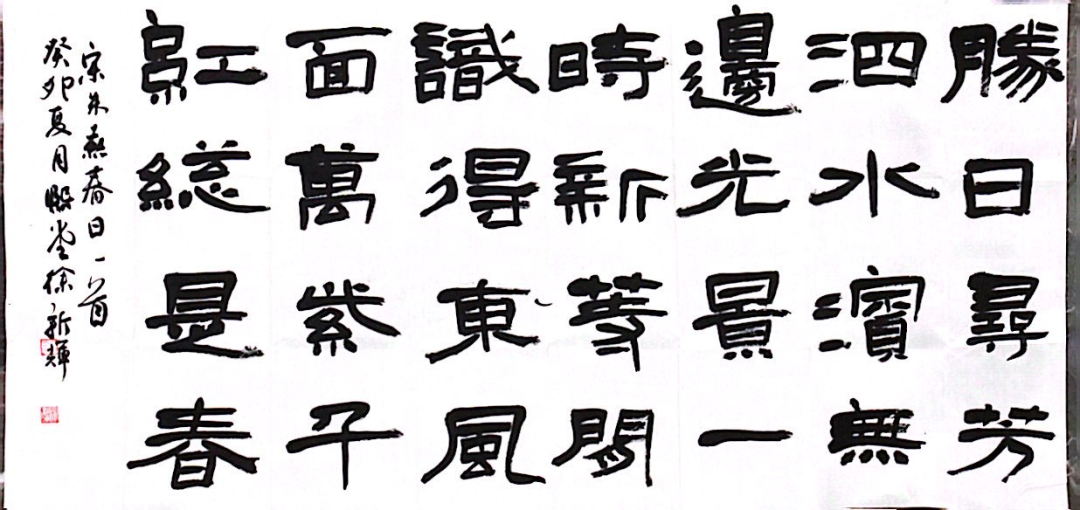 勝日尋芳
泗水濱無
邊光景一
時新等閒
識得東風
面萬紫千
紅総是春
宋朱熹春日一首
癸卯夏月堂徐新輝